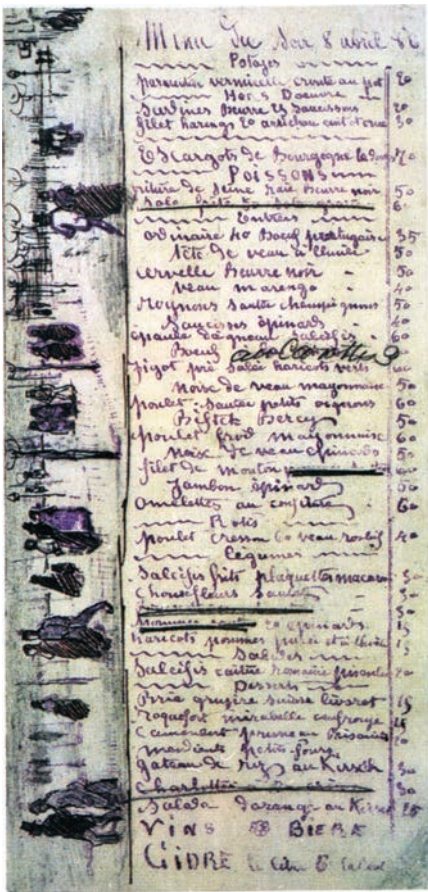 Menu du Soir 8 avril 86
Potages
Parmentier vermicelle croute au pot 20
Hors D'oeuvre
Sardines Beurre Saucissons 20
filet harengs 20 artichau 30
Escargots de Bourgogne la
POISSONS
friture de Seine raie beurre noir 50
60
Entrées
ordinaire 40 Boeuf portugaise 35
tête de veau à l'huile 50
cervelle Beurre noir 50
veau marengo 40
rognons sautés champignons 50
Saucisses épinards 40
épaule d'agneau salsifis 60
Boeuf aux Carottes
gigot pré salé haricots verts 60
noise de veau mayonnaise 50
poulet sautée petits oignons 60
Bifteck Bercy 50
poulet froid mayonnaise 60
noise de veau épinards 50
filet de mouton 60
Jambon épinard 50
omelettes au confiture 60
Rotis
poulet cresson 60 veau rostif 40
Légumes
Salcifis frits plaquettes macaroni 30
Choufleurs sautés 30
30
20 épinards 15
haricots pommes purée et à l'huile 15
Salades
Salcifis laitue romaine 20
Desserts
Brie gruyère suisse livarot 15
roquefort mirabelle 15
camembert pruneau 20
mendiants petits fours
gateau de riz au Kirsch 30
30
Salade d'orange au Kirsch 25
VINS BIERE
CIDRE le litre 6